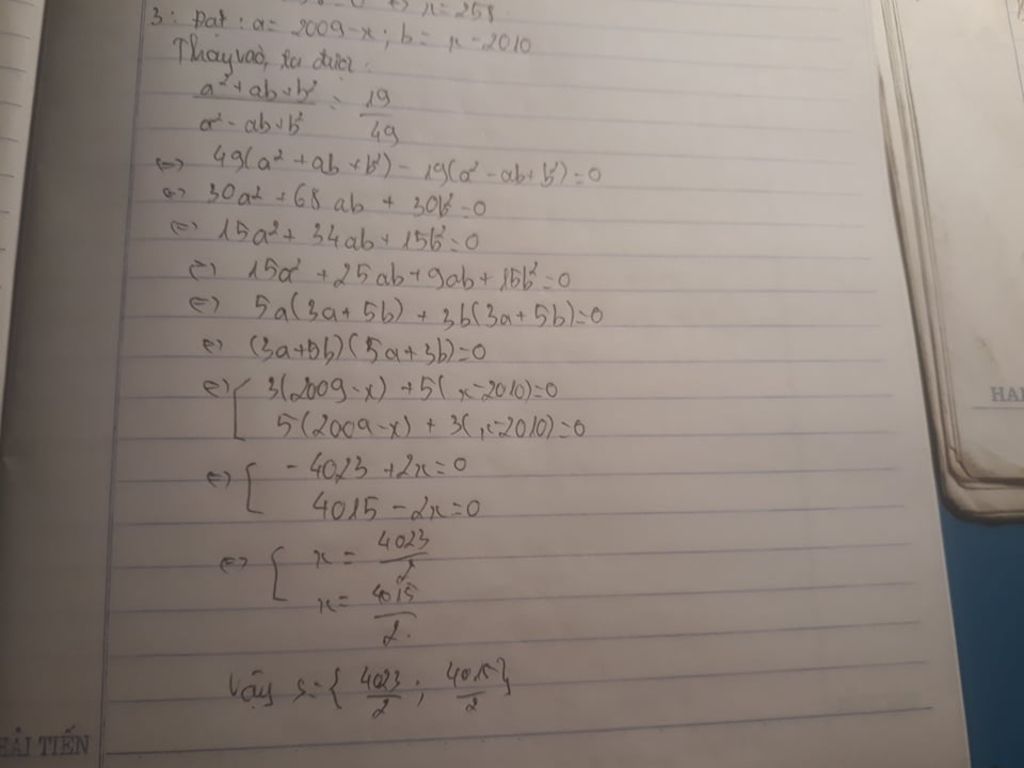 x = 258
3: Đặt: a = 2009 - x ; b = x - 2010
Thay vào, ta được:
a² + ab + b² / a² - ab + b² = 19/49
⇔ 49(a² + ab + b²) - 19(a² - ab + b²) = 0
⇔ 30a² + 68ab + 30b² = 0
⇔ 15a² + 34ab + 15b² = 0
⇔ 15a² + 25ab + 9ab + 15b² = 0
⇔ 5a(3a + 5b) + 3b(3a + 5b) = 0
⇔ (3a + 5b)(5a + 3b) = 0
⇔ [ 3(2009 - x) + 5(x - 2010) = 0
5(2009 - x) + 3(x - 2010) = 0
⇔ [ - 4023 + 2x = 0
4015 - 2x = 0
⇔ [ x = 4023/2
x = 4015/2
Vậy S = { 4023/2 ; 4015/2 }
HẢI TIẾN
HẢI